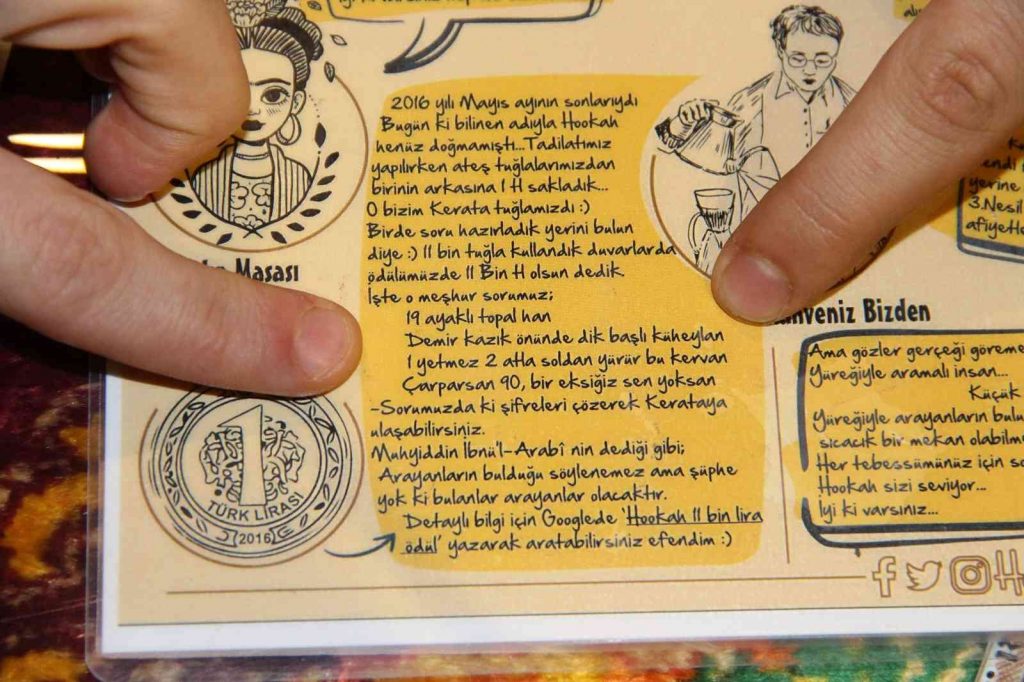 2016 yılı Mayıs ayının sonlarıydı
Bugün ki bilinen adıyla Hookah
henüz doğmamıştı...Tadilatımız
yapılırken ateş tuğlalarımızdan
birinin arkasına 1 H sakladık...
O bizim Kerata tuğlamızdı :)
Birde soru hazırladık yerini bulun
diye :) 11 bin tuğla kullandık duvarlarda
ödülümüzde 11 Bin H olsun dedik.
İşte o meşhur sorumuz;
19 ayaklı topal han
Demir kazık önünde dik başlı küheylan
1 yetmez 2 atla soldan yürür bu kervan
Çarparsan 90, bir eksiğiz sen yoksan
-Sorumuzda ki şifreleri çözerek Kerataya
ulaşabilirsiniz.
Muhyiddin İbnü'l-Arabî nin dediği gibi;
Arayanların bulduğu söylenemez ama şüphe
yok ki bulanlar arayanlar olacaktır.
Detaylı bilgi için Googlede 'Hookah 11 bin lira
ödül' yazarak aratabilirsiniz efendim :)
Masası
1
TÜRK LİRASI
2016
yerine
3.Nesil
Bizden
Ama gözler gerçeği
Yüreğiyle aramalı insan...
Küçük
Yüreğiyle arayanların
sıcacık bir mekan
Her tebessümünüz için
Hookah sizi seviyor...
İyi ki varsınız...